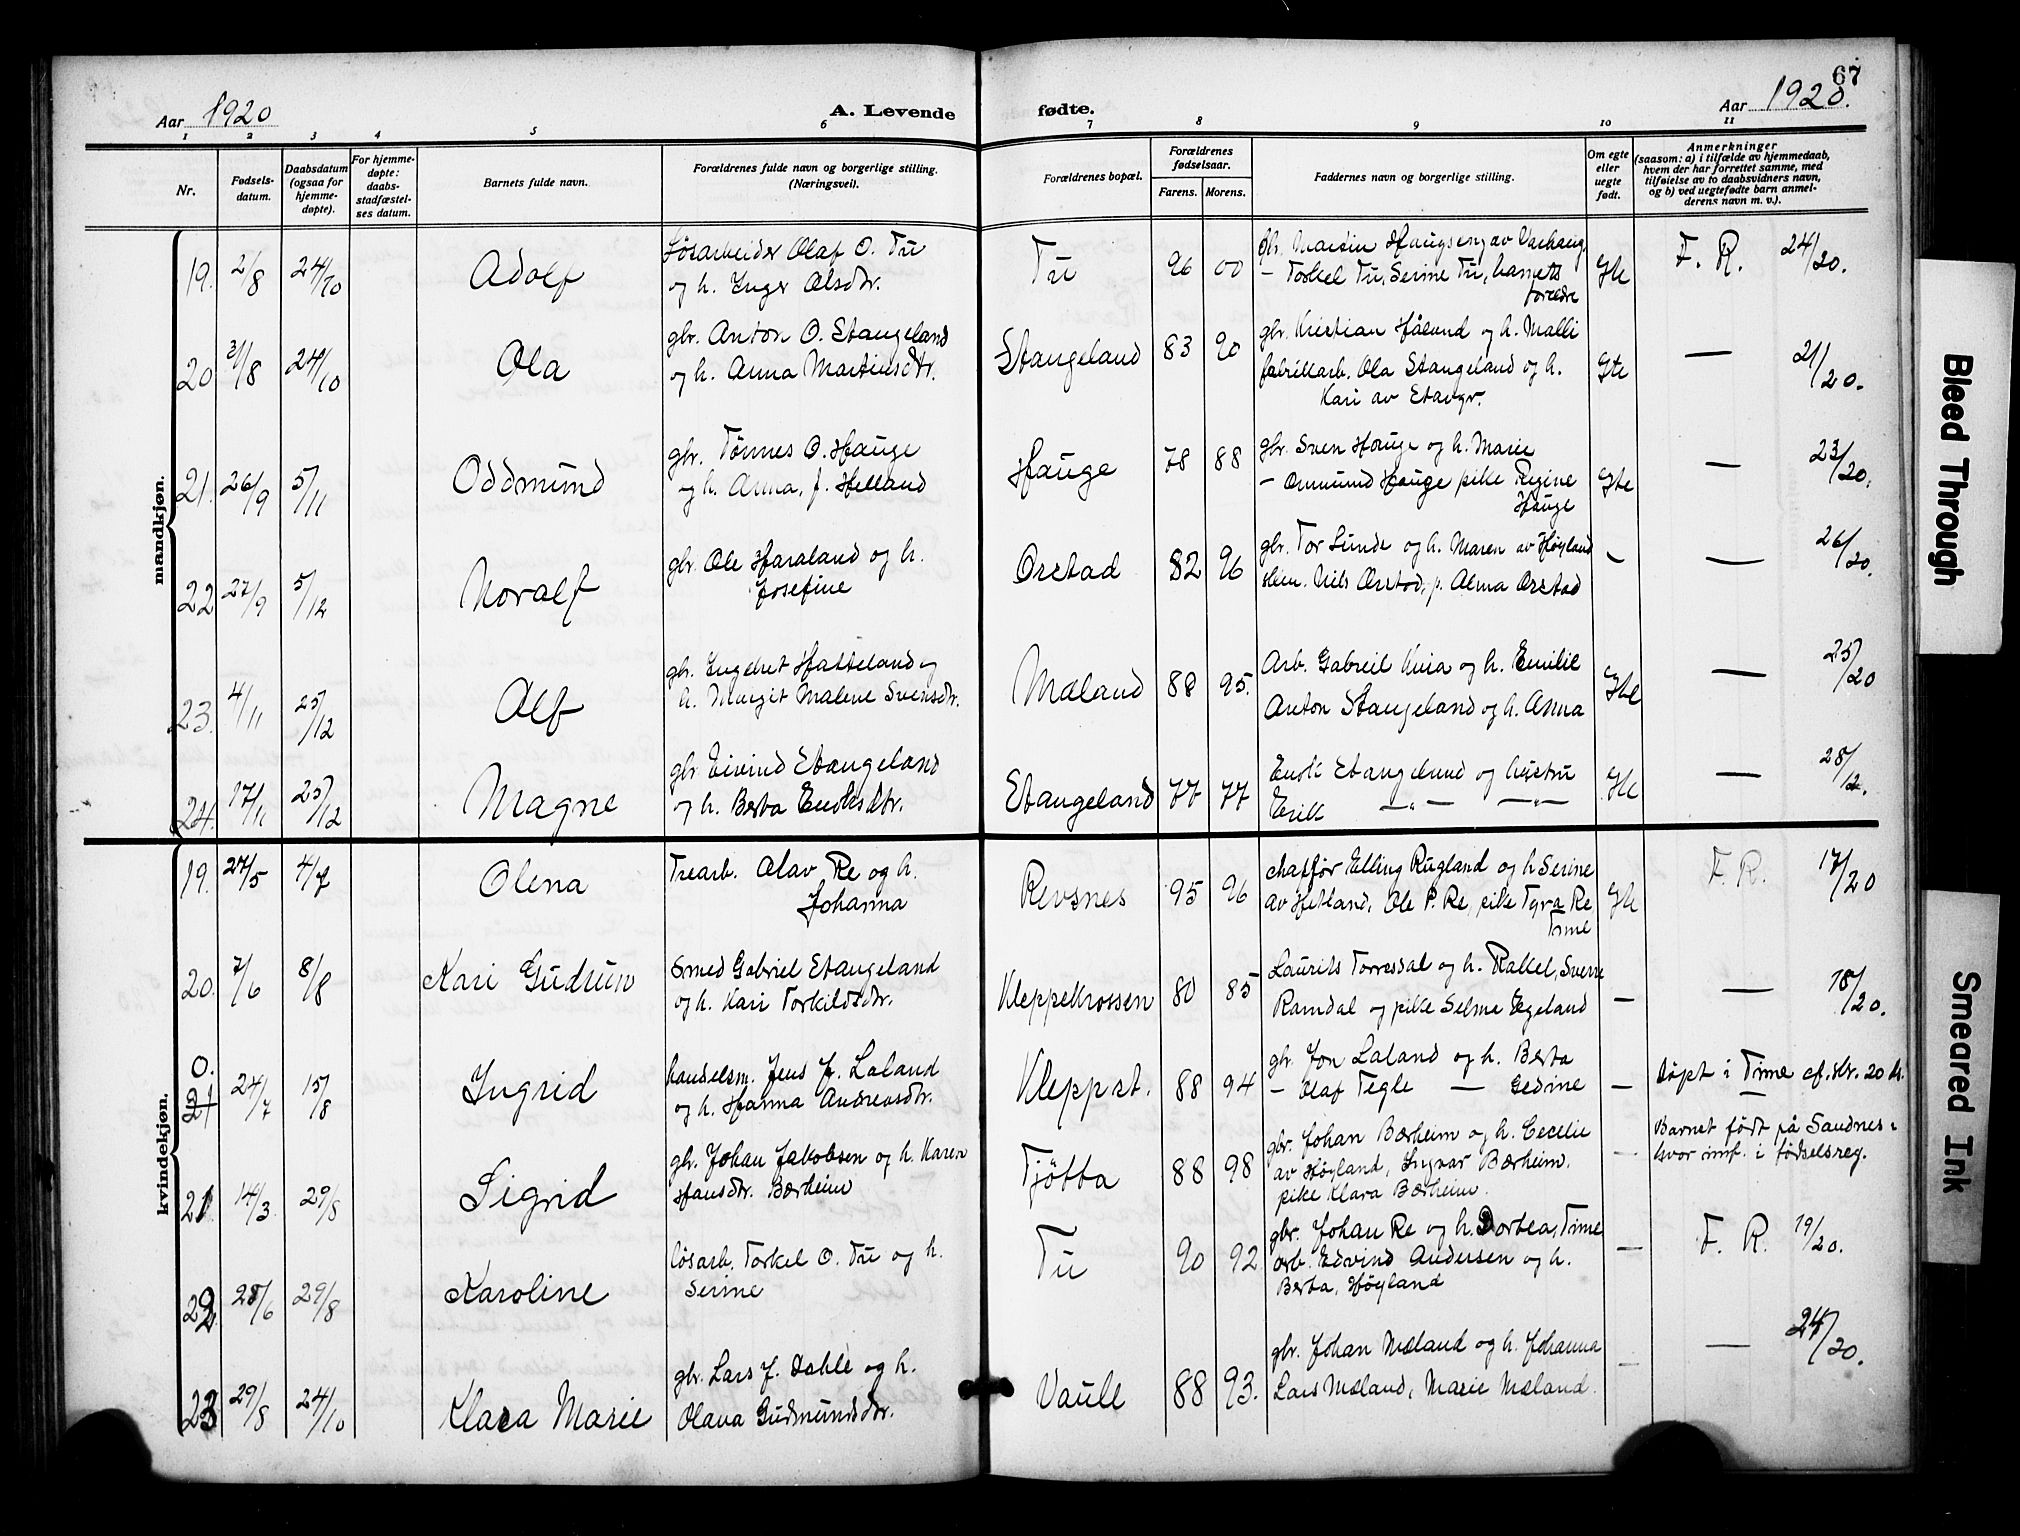 67
Aar 1920
A. Levende fødte.
Aar 1920.
1 2 3 4 5 6 7 8 9 10 11
Nr.
Fødsels-
datum.
Daabsdatum
(ogsaa for
hjemme-
døpte).
For hjemme-
døpte:
daabs-
stadfæstel-
ses datum.
Barnets fulde navn.
Forældrenes fulde navn og borgerlige stilling.
(Næringsvei).
Forældrenes bopæl.
Forældrenes
fødselsaar.
Farens. Morens.
Faddernes navn og borgerlige stilling.
Om egte
eller
uegte
født.
Anmerkninger
(saasom: a) i tilfælde av hjemmedaab,
hvem der har forrettet samme, med
tilføielse av to daabsvidners navn,
og b) ved uegtefødte barn anmel-
derens navn m. v.).
mandkjøn.
19. 2/8 24/10 Adolf
Løsarbeider Olaf O. Tu
og h. Inger Olsdtr.
Tu 96 00
gbr. Martin Haugseng av Varhaug
— Torkel Tu, Serine Tu, barnets
foreldre
Gte F. R. 24/20.
20 31/8 24/10 Ola
gbr. Anton O. Stangeland
og h. Anna Martinsdtr.
Stangeland 83 90
gbr. Kristian Håland og h. Malli
fabrikarb. Ola Stangeland og h.
Kari av Stavgr.
Gte — 21/20.
21. 26/9 5/11 Oddmund
gbr. Tønnes O. Hauge
og h. Anna, f. Helland
Hauge 78 88
gbr. Sven Hauge og h. Marie
— Ommund Hauge pike Regine
Hauge
Gte — 23/20.
22 27/9 5/12 Noralf
gbr. Ole Haraland og h.
Josefine
Orstad 82 96
gbr. Tor Lunde og h. Maren av Høyland
Nils Orstad, p. Alma Orstad
— — 26/20.
23. 4/11 25/12 Alf
gbr. Ingebret Hatteland og
h. Margit Malene Svensdtr.
Mæland 88 95.
Arb. Gabriel Kvia og h. Emilie
Anton Stangeland og h. Anna
Gte — 25/20
24. 17/11 25/12 Magne
gbr. Eivind Stangeland
og h. Berta Enoksdtr.
Stangeland 77 77
Enok Stangeland og hustru
Erik —"— —"—
Gte — 28/12.
kvindekjøn.
19. 27/5 4/7 Olena
Trearb. Olav Re og h.
Johanna
Revsnes 95 96
chaffør Elling Rugland og h Serine
av Hetland, Ole P. Re, pike Tyra Re
Time
Gte F. R. 17/20
20. 7/6 8/8 Kari Gudrun
Smed Gabriel Stangeland
og h. Kari Torkildsdtr.
Kleppekrossen 80 85
Laurits Torresdal og h. Rakel, Sverre
Ramdal og pike Selma Egeland
— — 18/20.
0.
21 24/7 15/8 Ingrid
handelsm. Jens J. Laland
og h. Hanna Andreasdtr.
Kleppst. 88 94
gbr. Jon Laland og h. Berta
— Olaf Tegle — Gedine
— døpt i Time cf. skr. 20 ds.
21. 14/3 29/8 Sigrid
gbr. Johan Jakobsen og h. Karen
Hansdtr. Bærheim
Tjötta 88 98
gbr. Johan Bærheim og h. Cecelie
av Høyland, Ingvar Bærheim.
pike Klara Bærheim.
—
Barnet født på Sandnes.
hvor innf. i fødselsreg.
22 28/6 29/8 Karoline
løsarb. Torkel O. Tu og h.
Serine
Tu 90 92
gbr. Johan Re og h. Dortea, Time
arb. Edvind Andersen og h.
Berta, Høyland
— F. R. 19/20.
23 29/8 24/10 Klara Marie
gbr. Lars J. Dahle og h.
Olava Gudmundsdtr.
Vaule 88 93.
gbr. Johan Mæland og h. Johanna
Lars Mæland, Marie Mæland.
— — 24/20.
Bleed Through
Smeared Ink